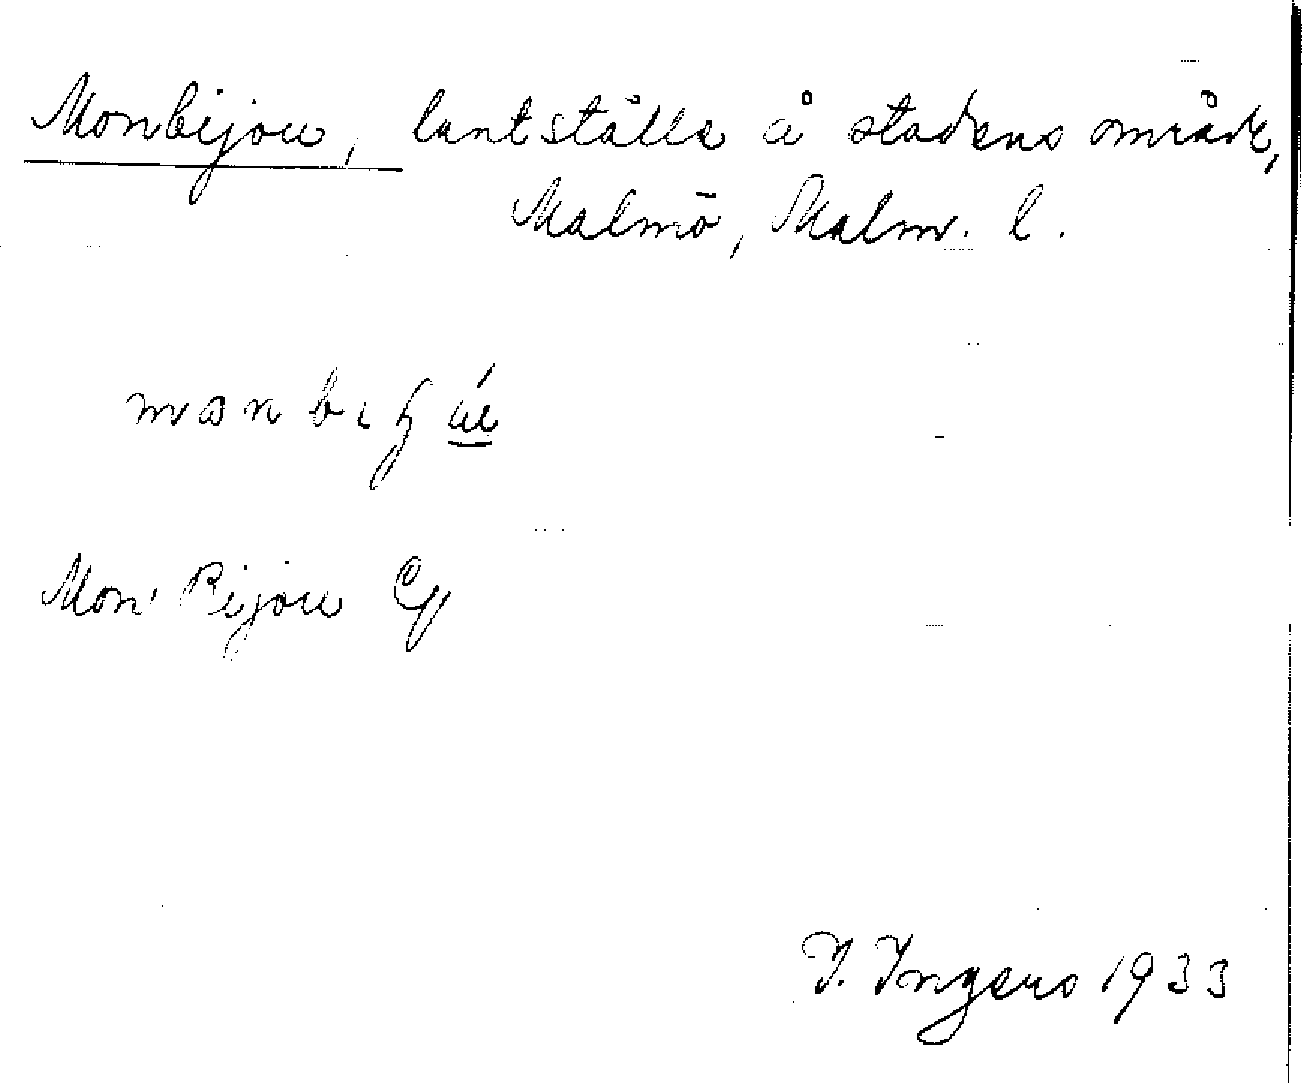 Monbijou, lantställe å stadens område,
Malmö, Malm. l.
Mon Bijou
I. Ingers 1933